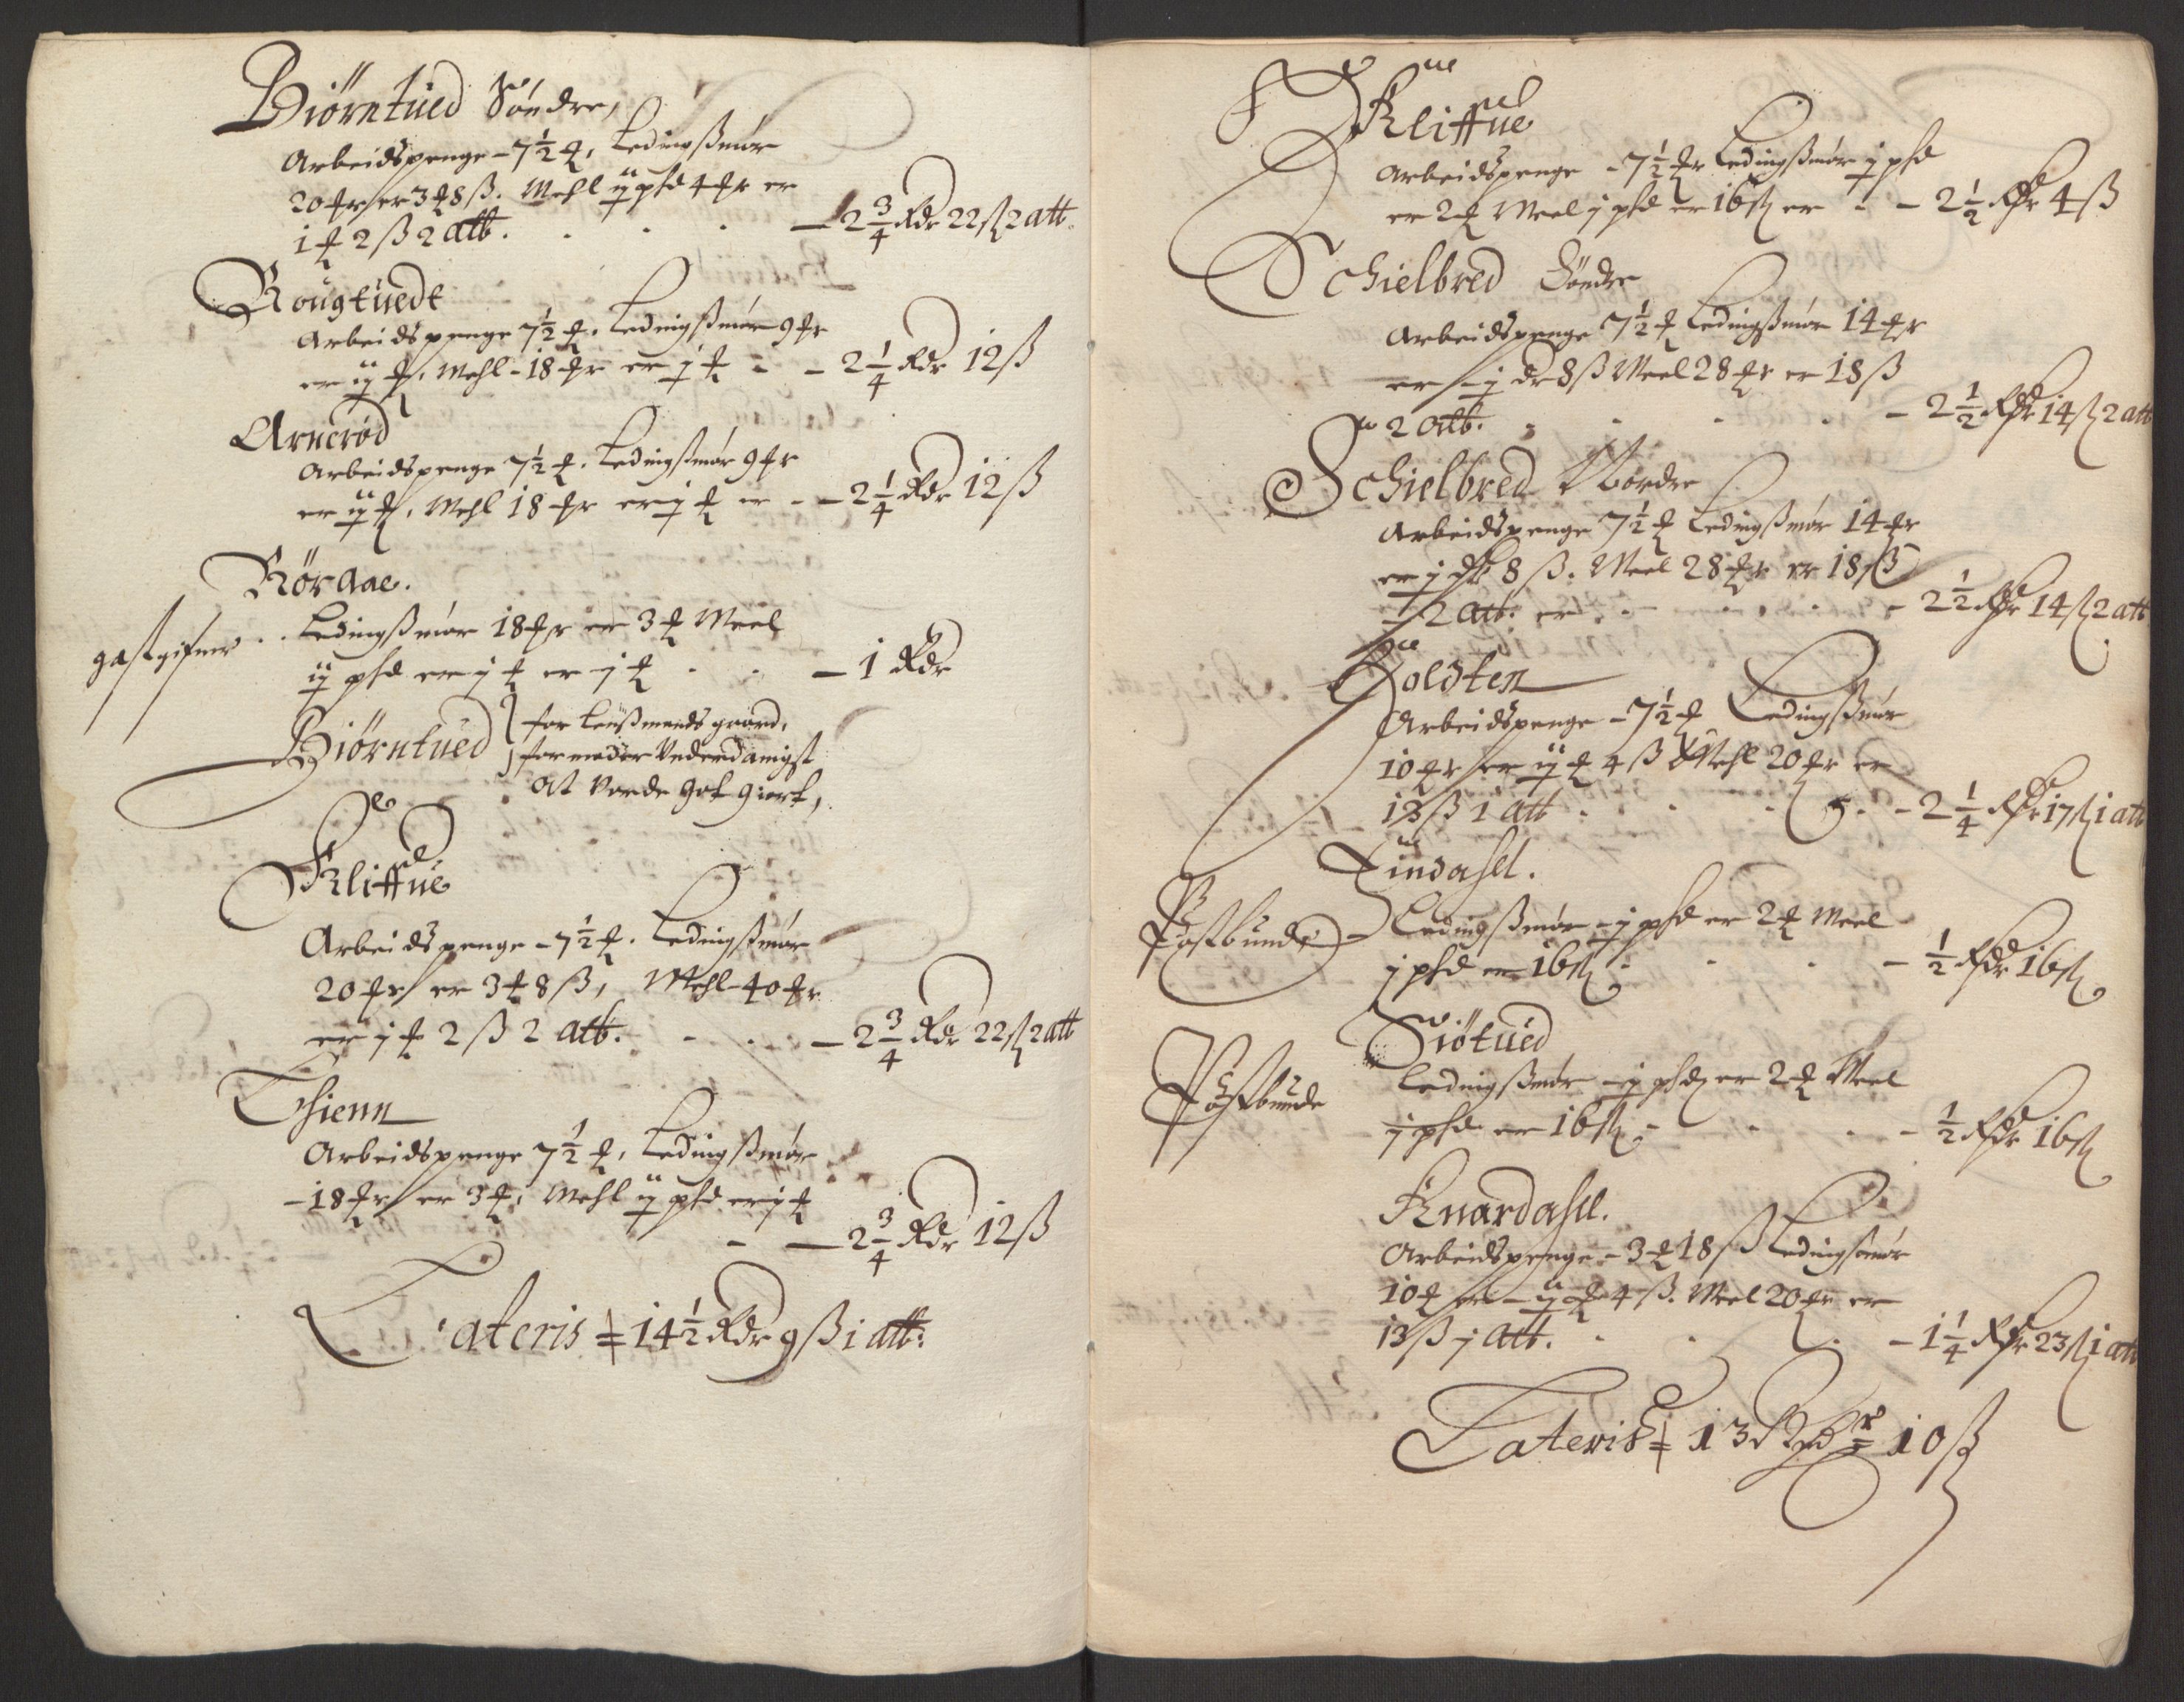 Biørntued Søndre,
Arbeidspenge - 7½ ₰, Ledingsmør
20 ₰r er 3 ₰ 8 ß. Mehl ij pfd 4 ₰r er
1 ₰ 2 ß 2 alb. . . . — 2¾ Rdr 22 ß 2 alb
Rougtuedt
Arbeidspenge 7½ ₰. Ledingsmør 9 ₰r
er ij ₰, Mehl - 18 ₰r er j ₰ - - 2¼ Rdr 12 ß
Arnerød
Arbeidspenge 7½ ₰. Ledingsmør 9 ₰r
er ij ₰, Mehl 18 ₰r er j ₰ er - - 2¼ Rdr 12 ß
Rør Aae.
gastgifuer . . Ledingsmør 18 ₰r er 3 ₰ Meel
ij pfd er j ₰ er j ₰ . . — 1 Rdr
Biørntued for Lensmands gaard,
formeder Underdanigst
at vorde got giort,
Kliffue
Arbeidspenge - 7½ ₰. Ledingsmør
20 ₰r er 3 ₰ 8 ß, Mehl 40 ₰r
er j ₰ 2 ß 2 alb. - . . — 2¾ Rdr 22 ß 2 alb
Thienn
Arbeidspenge 7½ ₰, Ledingsmør
- 18 ₰r er 3 ₰, Mehl ij pfd er j ₰
- — 2¾ Rdr 12 ß
Lateris = 14½ Rdr 9 ß 1 alb:
Kliffue
Arbeidspenge - 7½ ₰r Ledingsmør j pfd
er 2 ₰ Meel j pfd er 16 ß er - - 2½ Rdr 4 ß
Schielbred Søndre
Arbeidspenge 7½ ₰ Ledingsmør 14 ₰r
er - j dr 8 ß Meel 28 ₰r er 18 ß
2 alb. - . . . - 2½ Rdr 14 ß 2 alb
Schielbred Nordre
Arbeidspenge 7½ ₰ Ledingsmør 14 ₰r
er j dr 8 ß. Meel 28 ₰r er 18 ß
- 2 alb. er . - . . . - 2½ Rdr 14 ß 2 alb
Holsten
Arbeidspenge - 7½ ₰ Ledingsmør
10 ₰r er ij ₰ 4 ß Mehl 20 ₰r er
13 ß 1 alb . . . - 2¼ Rdr 17 ß 1 alb
Lindahll.
Postbunde - Ledingsmør - j pfd er 2 ₰ Meel
j pfd er 16 ß - . . - ½ Rdr 16 ß
Siøtued
Postbunde Ledingsmør - j pfd er 2 ₰ Meel
j pfd er 16 ß - . . - ½ Rdr 16 ß
Knardahll.
Arbeidspenge - 3 ₰ 18 ß Ledingsmør
10 ₰ er - ij ₰ 4 ß. Meel 20 ₰r er
13 ß j alb. . . . - 1¼ Rdr 23 ß 1 alb
Lateris = 13 Rdr 10 ß